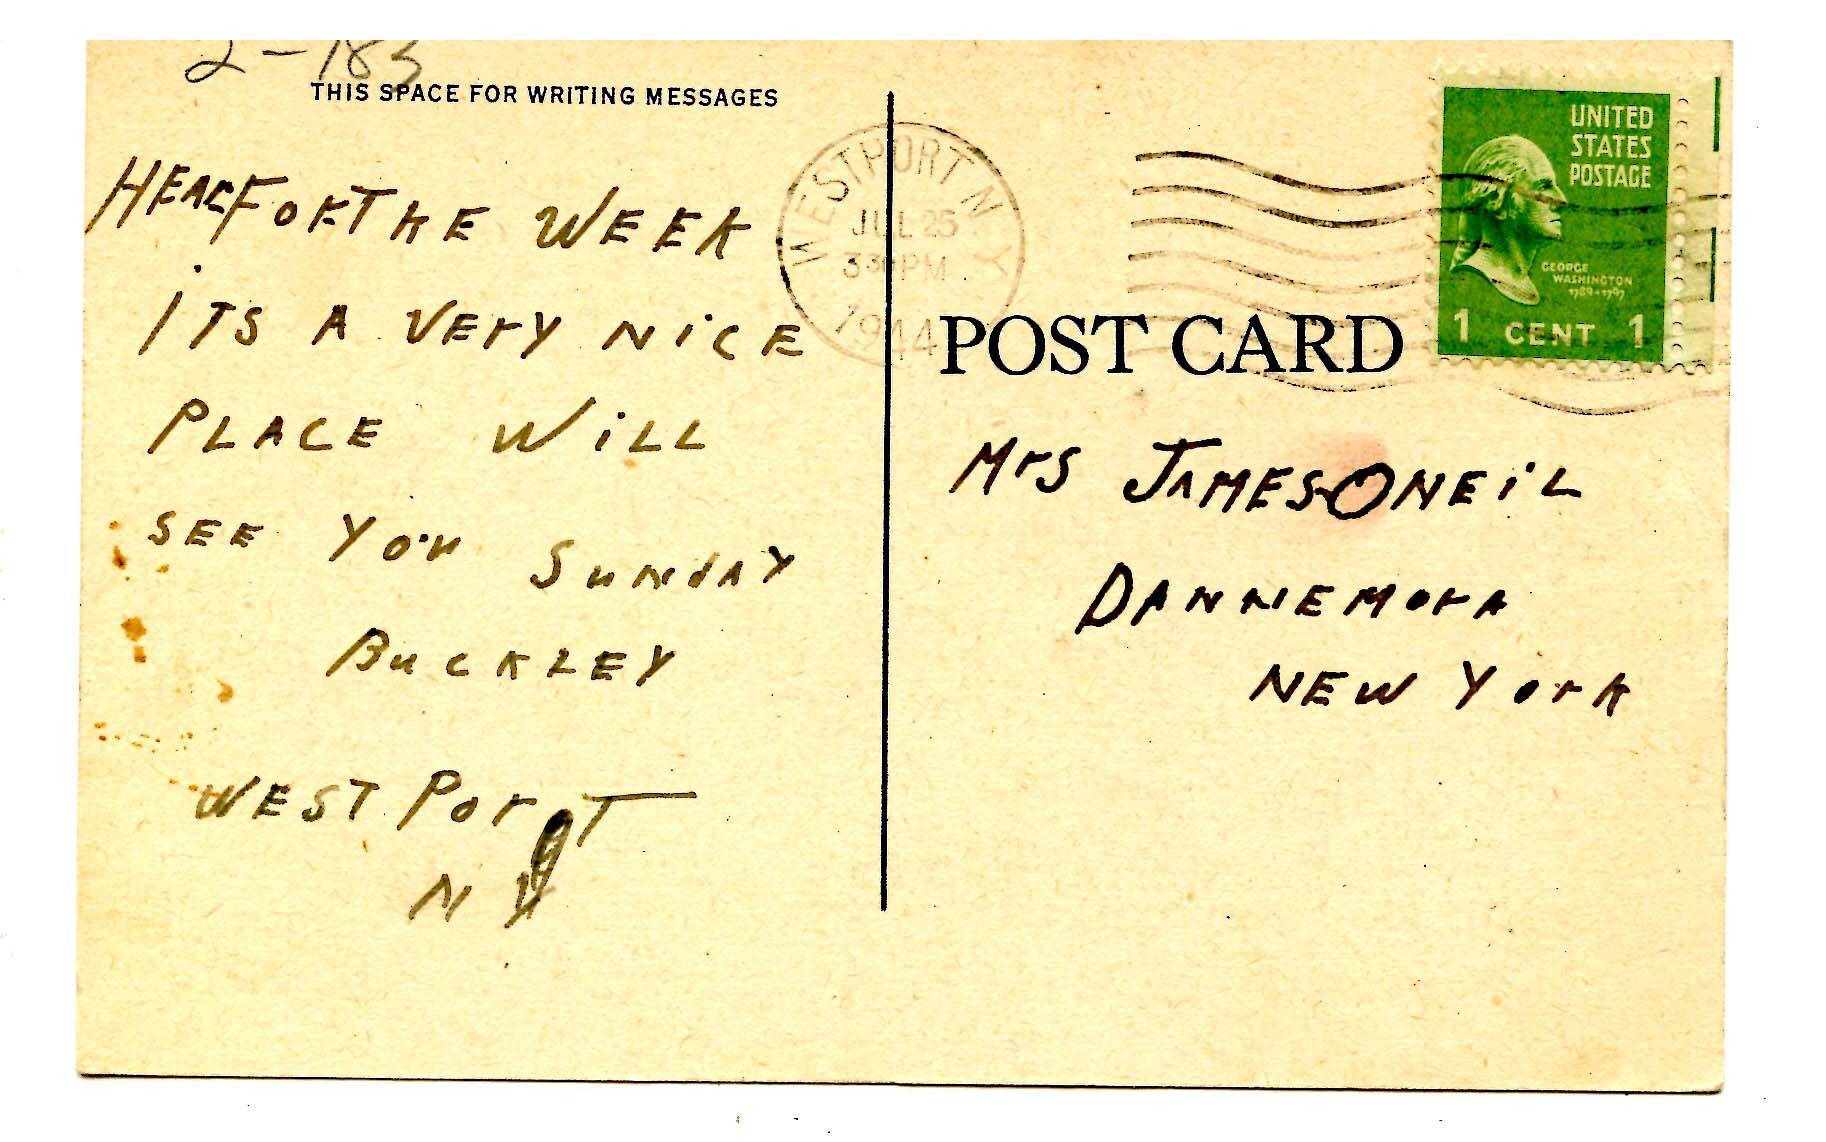 2-183
THIS SPACE FOR WRITING MESSAGES
HEAR FOR THE WEEK
ITS A VErY NiCE
PLACE WiLL
SEE YOU SUNdAY
BuCKLEY
WEST PorT
NY
WESTPORT N.Y.
JUL 25
330 PM
1944
UNITED
STATES
POSTAGE
GEORGE
WASHINGTON
1789-1797
1 CENT 1
POST CARD
MrS JAMES ONEiL
DANNEMorA
NEW York